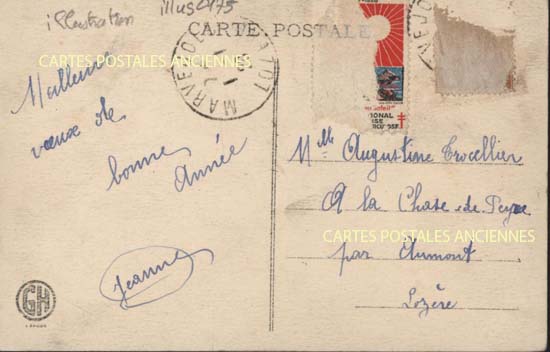 illustration
illus 2475
CARTE POSTALE
MARVEJOLS
CARTES POSTALES ANCIENNES
Meilleurs
vœux de
bonne
année
Jeanne
GH
Soleil"
IONAL
Mlle Augustine Trocellier
A la Chaze-de-Peyre
CARTES POSTALES ANCIENNES
par Aumont
Lozère